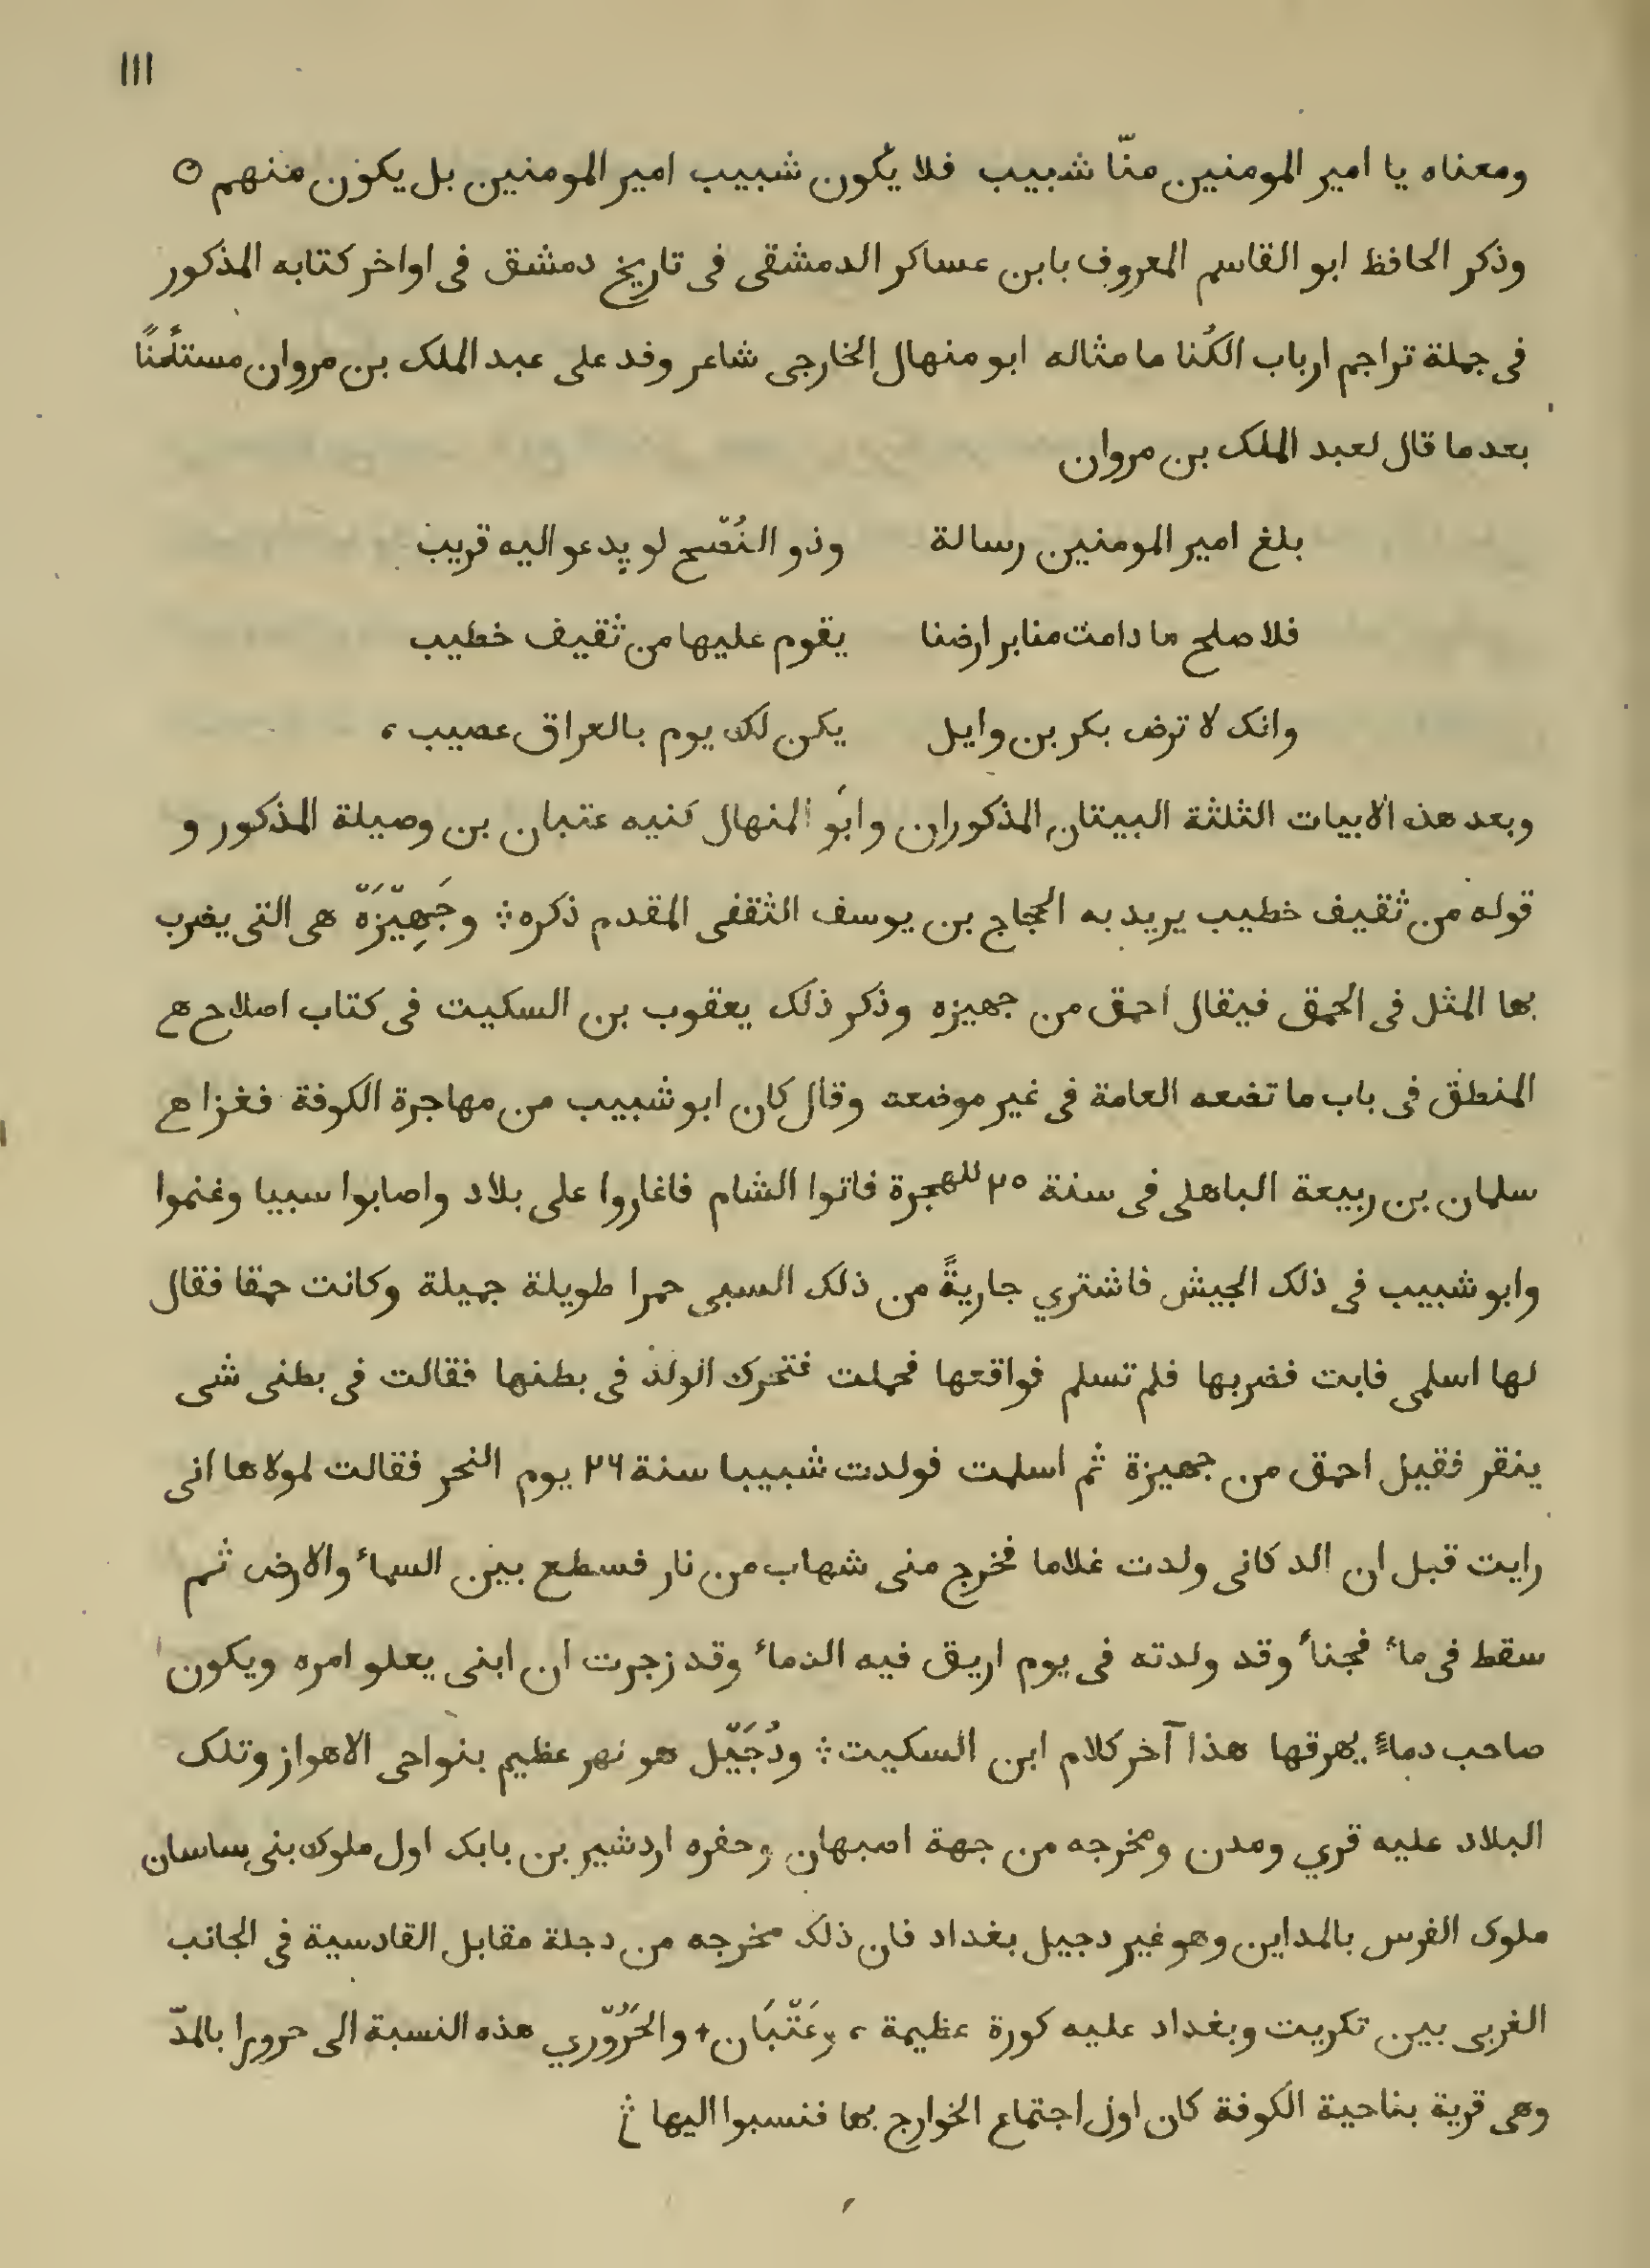 ١١١
ومعناه يا امير المومنين منّا شبيب فلا يكون شبيب امير المومنين بل يكون منهم ○
وذكر الحافظ ابو القاسم المعروف بابن عساكر الدمشقى فى تاريخ دمشق فى اواخر كتابه المذكور
فى جملة تراجم ارباب الكُنا ما مثاله ابو منهال الخارجى شاعر وفد على عبد الملك بن مروان مستأمنًا
بعد ما قال لعبد الملك بن مروان
بلغ امير المومنين رسالة وذو النُصْح لو يدعو اليه قريب
فلا صلح ما دامت منابر ارضنا يقوم عليها من ثقيف خطيب
وانك لا ترض بكر بن وايل يكن لك يوم بالعراق عصيب ،
وبعد هذه الابيات الثلثة البيتان المذكوران وابو المنهال كنيه عتبان بن وصيلة المذكور و
قوله من ثقيف خطيب يريد به الحجاج بن يوسف الثقفى المقدم ذكره ؞ وجَهِيْزَةْ هى التى يضرب
بها المثل فى الحمق فيقال احمق من جهيزه وذكر ذلك يعقوب بن السكيت فى كتاب اصلاح ھ
المنطق فى باب ما تضعه العامة فى غير موضعه وقال كان ابو شبيب من مهاجرة الكوفة فغزا ھ
سلمان بن ربيعة الباهلى فى سنة ٢٥ للهجرة فاتوا الشام فاغاروا على بلاد واصابوا سبيا وغنموا
وابو شبيب فى ذلك الجيش فاشتري جاريةً من ذلك السبى حمرا طويلة جميلة وكانت حمقا فقال
لها اسلمى فابت فضربها فلم تسلم فواقعها فحملت فتحرك الولد فى بطنها فقالت فى بطنى شى
ينقر فقيل احمق من جهيزة ثم اسلمت فولدت شبيبا سنة ٢٦ يوم النحر فقالت لمولاها انى
رايت قبل ان الد كانى ولدت غلاما فخرج منى شهاب من نار فسطع بين السماء والارض ثم
سقط فى ماء فجناء وقد ولدته فى يوم اريق فيه الدماء وقد زجرت ان ابنى يعلو امره ويكون
صاحب دماءً يهرقها هذا آخر كلام ابن السكيت ؞ ودُجَيْل هو نهر عظيم بنواحى الاهواز وتلك
البلاد عليه قري ومدن ومخرجه من جهة اصبهان وحفره اردشير بن بابك اول ملوك بنى ساسان
ملوك الفرس بالمداين وهو غير دجيل بغداد فان ذلك مخرجه من دجلة مقابل القادسية فى الجانب
الغربى بين تكريت وبغداد عليه كورة عظيمة ، وعَتْبَان + والحَرُوْري هذه النسبة الى حرورا بالمدّ
وهى قرية بناحية الكوفة كان اول اجتماع الخوارج بها فنسبوا اليها